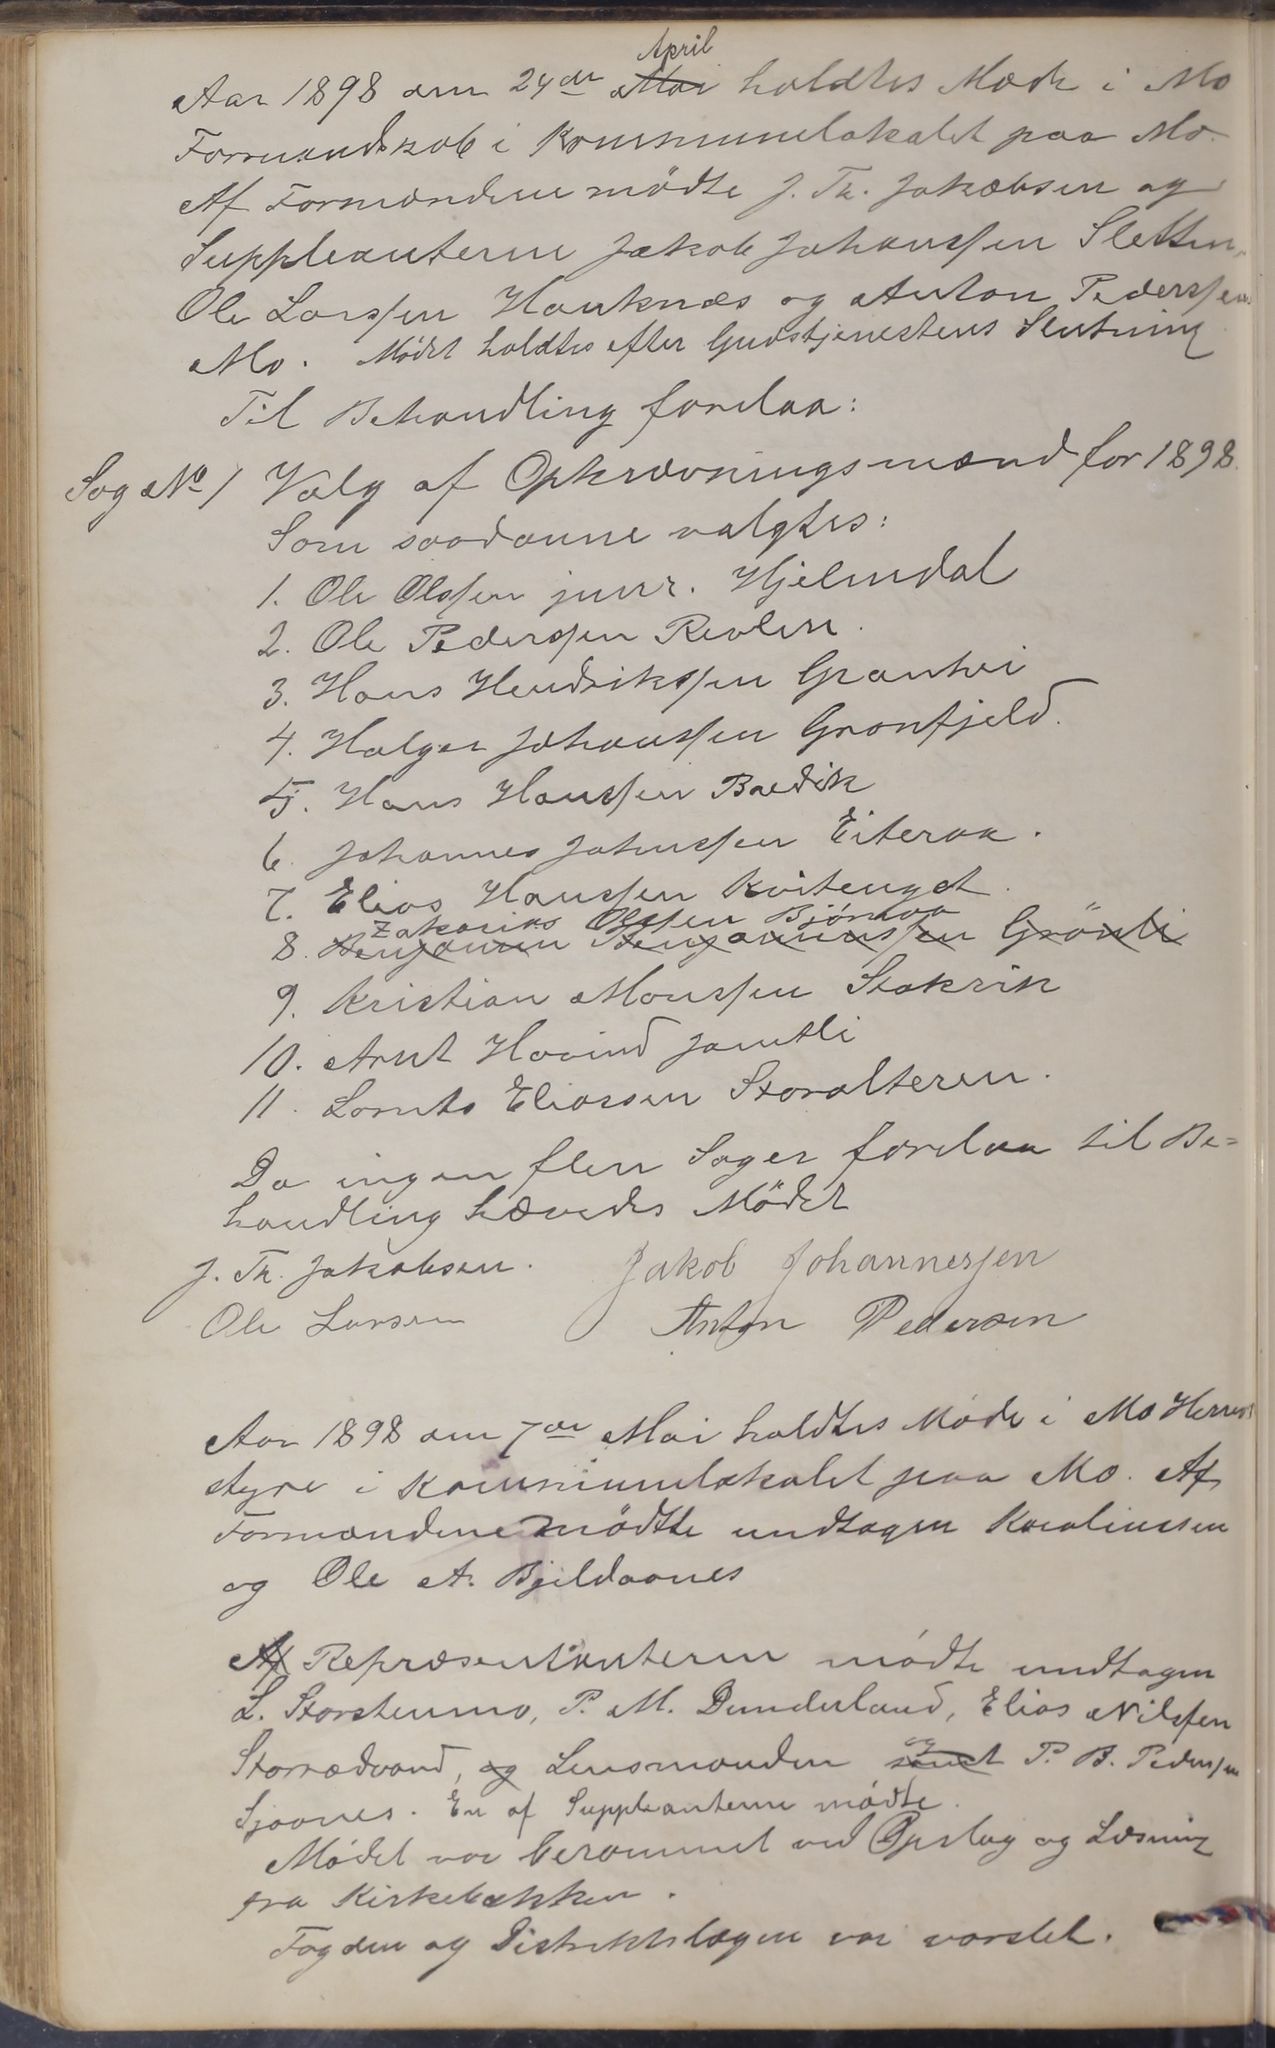 April
Aar 1898 den 24de Mai holdtes Møde i Mo
Formandskab i Kommunelokalet paa Mo.
Af Formændene mödte J. Th. Jakobsen og
Suppleanterne Jakob Johanssen Sletten,
Ole Larssen Hauknæs og Anton Pederssen
Mo. Mödet holdtes efter Gudstjenestens Slutning
Til Behandling forelaa:
Sag No 1 Valg af Opkrævningsmænd for 1898.
Som saadanne valgtes:
1. Ole Olssen junr. Hjelmdal
2. Ole Pederssen Revlen.
3. Hans Hendrikssen Granhei
4. Holger Johanssen Grønfjeld.
5. Hans Hanssen Bredik
6. Johannes Johnssen Eiteraa.
7. Elias Hanssen Kvitenget.
Zakarias Olssen Bjørnaa
8. Benjamin Benjaminssen Grönli
9. Kristian Monssen Stokvik
10. Arnt Hovind Jamtli
11. Lornts Eliassen Storalteren.
Da ingen flere Sager forelaa til Be=
handling hævedes Mödet
J. Th. Jakobsen. Jakob Johannessen
Ole Larsen Anton Pedersen
Aar 1898 den 7de Mai holdtes Møde i Mo Herreds
styre i Kommunelokalet paa Mo. Af
Formændene mödte undtagen Karolinssen
og Ole A. Bjeldaanes
Af Repræsentanterne mödte undtagen
L. Storstenmo, P. M. Dunderland, Elias Nilssen
og
Storrødvand, og Lensmanden samt P. B. Pederssen
Sjoanes. En af Suppleanterne mödte.
Mödet var berammet ved Opslag og Læsning
fra Kirkebakken.
Fogden og Distriktslægen var varslet.